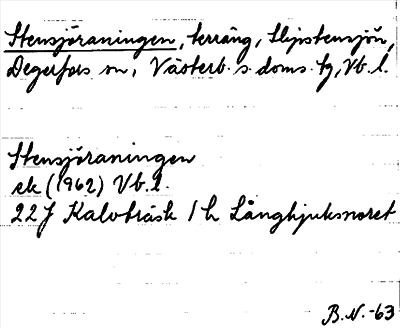 Stensjöraningen, terräng, Slipstensjön,
Degerfors sn, Västerb. s. doms. tg, Vb. l.
Stensjöraningen
ek (1962) Vb. l.
22 J Kalvträsk 1 h Långhjuksnoret
B.N. -63